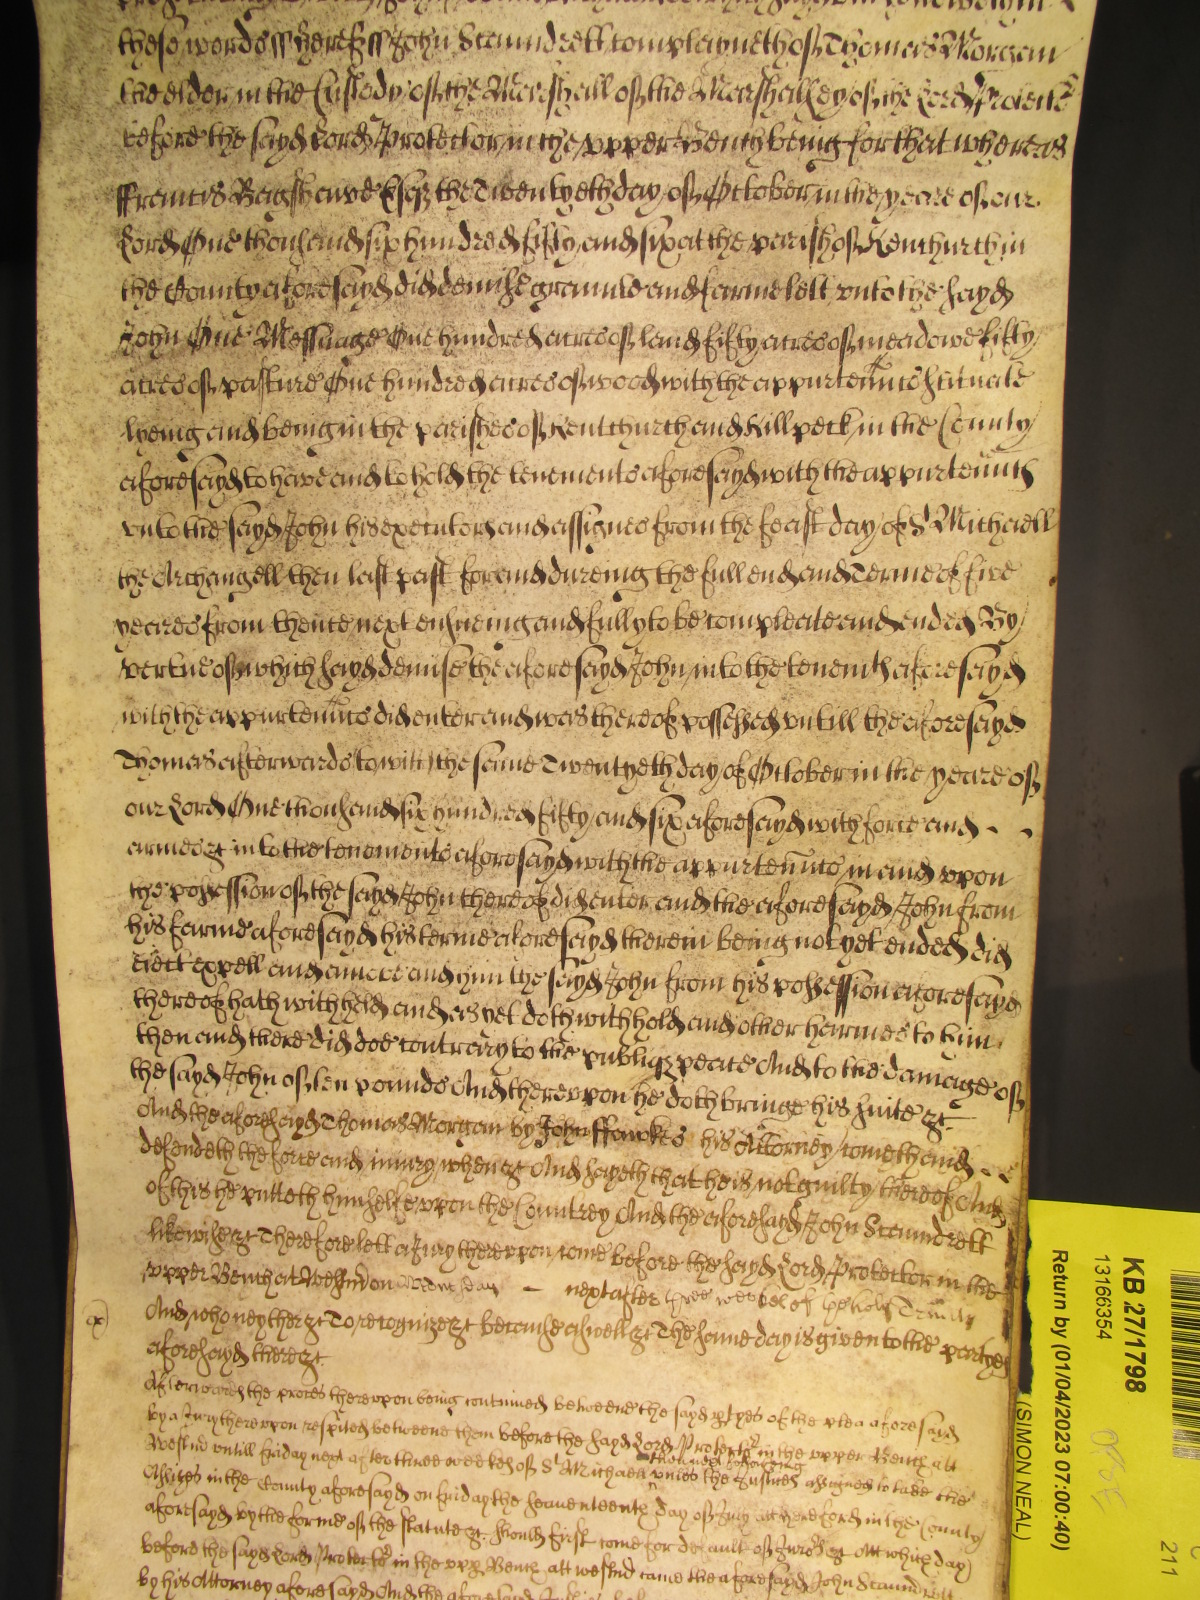 these words ss Heref ss John Scaundrett complayneth of Thomas Morgan
the elder in the Custody of the Marshall of the Marshallsey of the Lord Protectr
before the sayd Lord Protector in the upper Bench being for that whereas
ffrancis Bagshawe Esqr the Twentyeth day of October in the yeare of our
Lord One thousand six hundred fifty and six at the parish of Kenchurch in
the County aforesayd did demise graunte and farme lett unto the sayd
John One Messuage One hundred acres of land fifty acres of meadowe fifty
acres of pasture One hundred acres of wood with the appurtennts scituate
lyeing and being in the parishes of Kentchurch and Killpeck in the County
aforesayd to have and to hold the tenements aforesayd with the appurtennts
unto the sayd John his executors and assignes from the feast day of St Michaell
the Archangell then last past for and dureing the full end and Terme of five
yeares from thence next ensueing and fully to be compleate and ended By
vertue of which sayd demise the aforesayd John into the tenemts aforesayd
with the appurtennts did enter and was thereof possessed untill the aforesayd
Thomas afterwards to witt the same Twentyeth day of October in the yeare of
our Lord One thousand six hundred fifty and six aforesayd with force and
armes &c into the tenements aforesayd with the appurtennts in and upon
the possession of the sayd John thereof did enter and the aforesayd John from
his farme aforesayd his terme aforesayd therein being not yet ended did
eiect expell and amove and him the sayd John from his possession aforesayd
thereof hath withheld and as yet doth withhold and other harmes to him
then and there did doe contrary to the publiq peace And to the damage of
the sayd John of ten pounds And thereupon he doth bringe his suite &c
And the aforesayd Thomas Morgan by John ffawkes his Attorney cometh and
defendeth the force and iniury when &c And sayeth that he is not guilty thereof And
of this he putteth himselfe upon the Countrey And the aforesayd John Scaundrett
likewise &c Therefore lett a Jury thereupon come before the sayd Lord Protector in the
upper Bench at Westmr on Wednesday next after three weekes of the holy Trinity
And who neyther &c To recognize &c because aswell &c The same day is given to the partyes
aforesayd there &c
Afterwards the proces thereupon being continued betweene the sayd ptyes of the plea aforesayd
by a Jury thereupon respited betweene them before the sayd Lord Protectr in the upper Bench att
Westmr untill friday next after three weekes of St Michaell then next following unles the Justices assigned to take the
Assizes in the County aforesayd on friday the seaventeenth day of July att Hereford in the County
aforesayd by the forme of the statute &c should first come for default of Jurors &c Att which day
before the sayd Lord Protectr in the upp Bench att Westmr came the aforesayd John Scaundrett
by his Attorney aforesayd And the aforesayd
KB 27/1798
13166354
Return by (01/04/2023 07:00:40)
(SIMON NEAL)
211